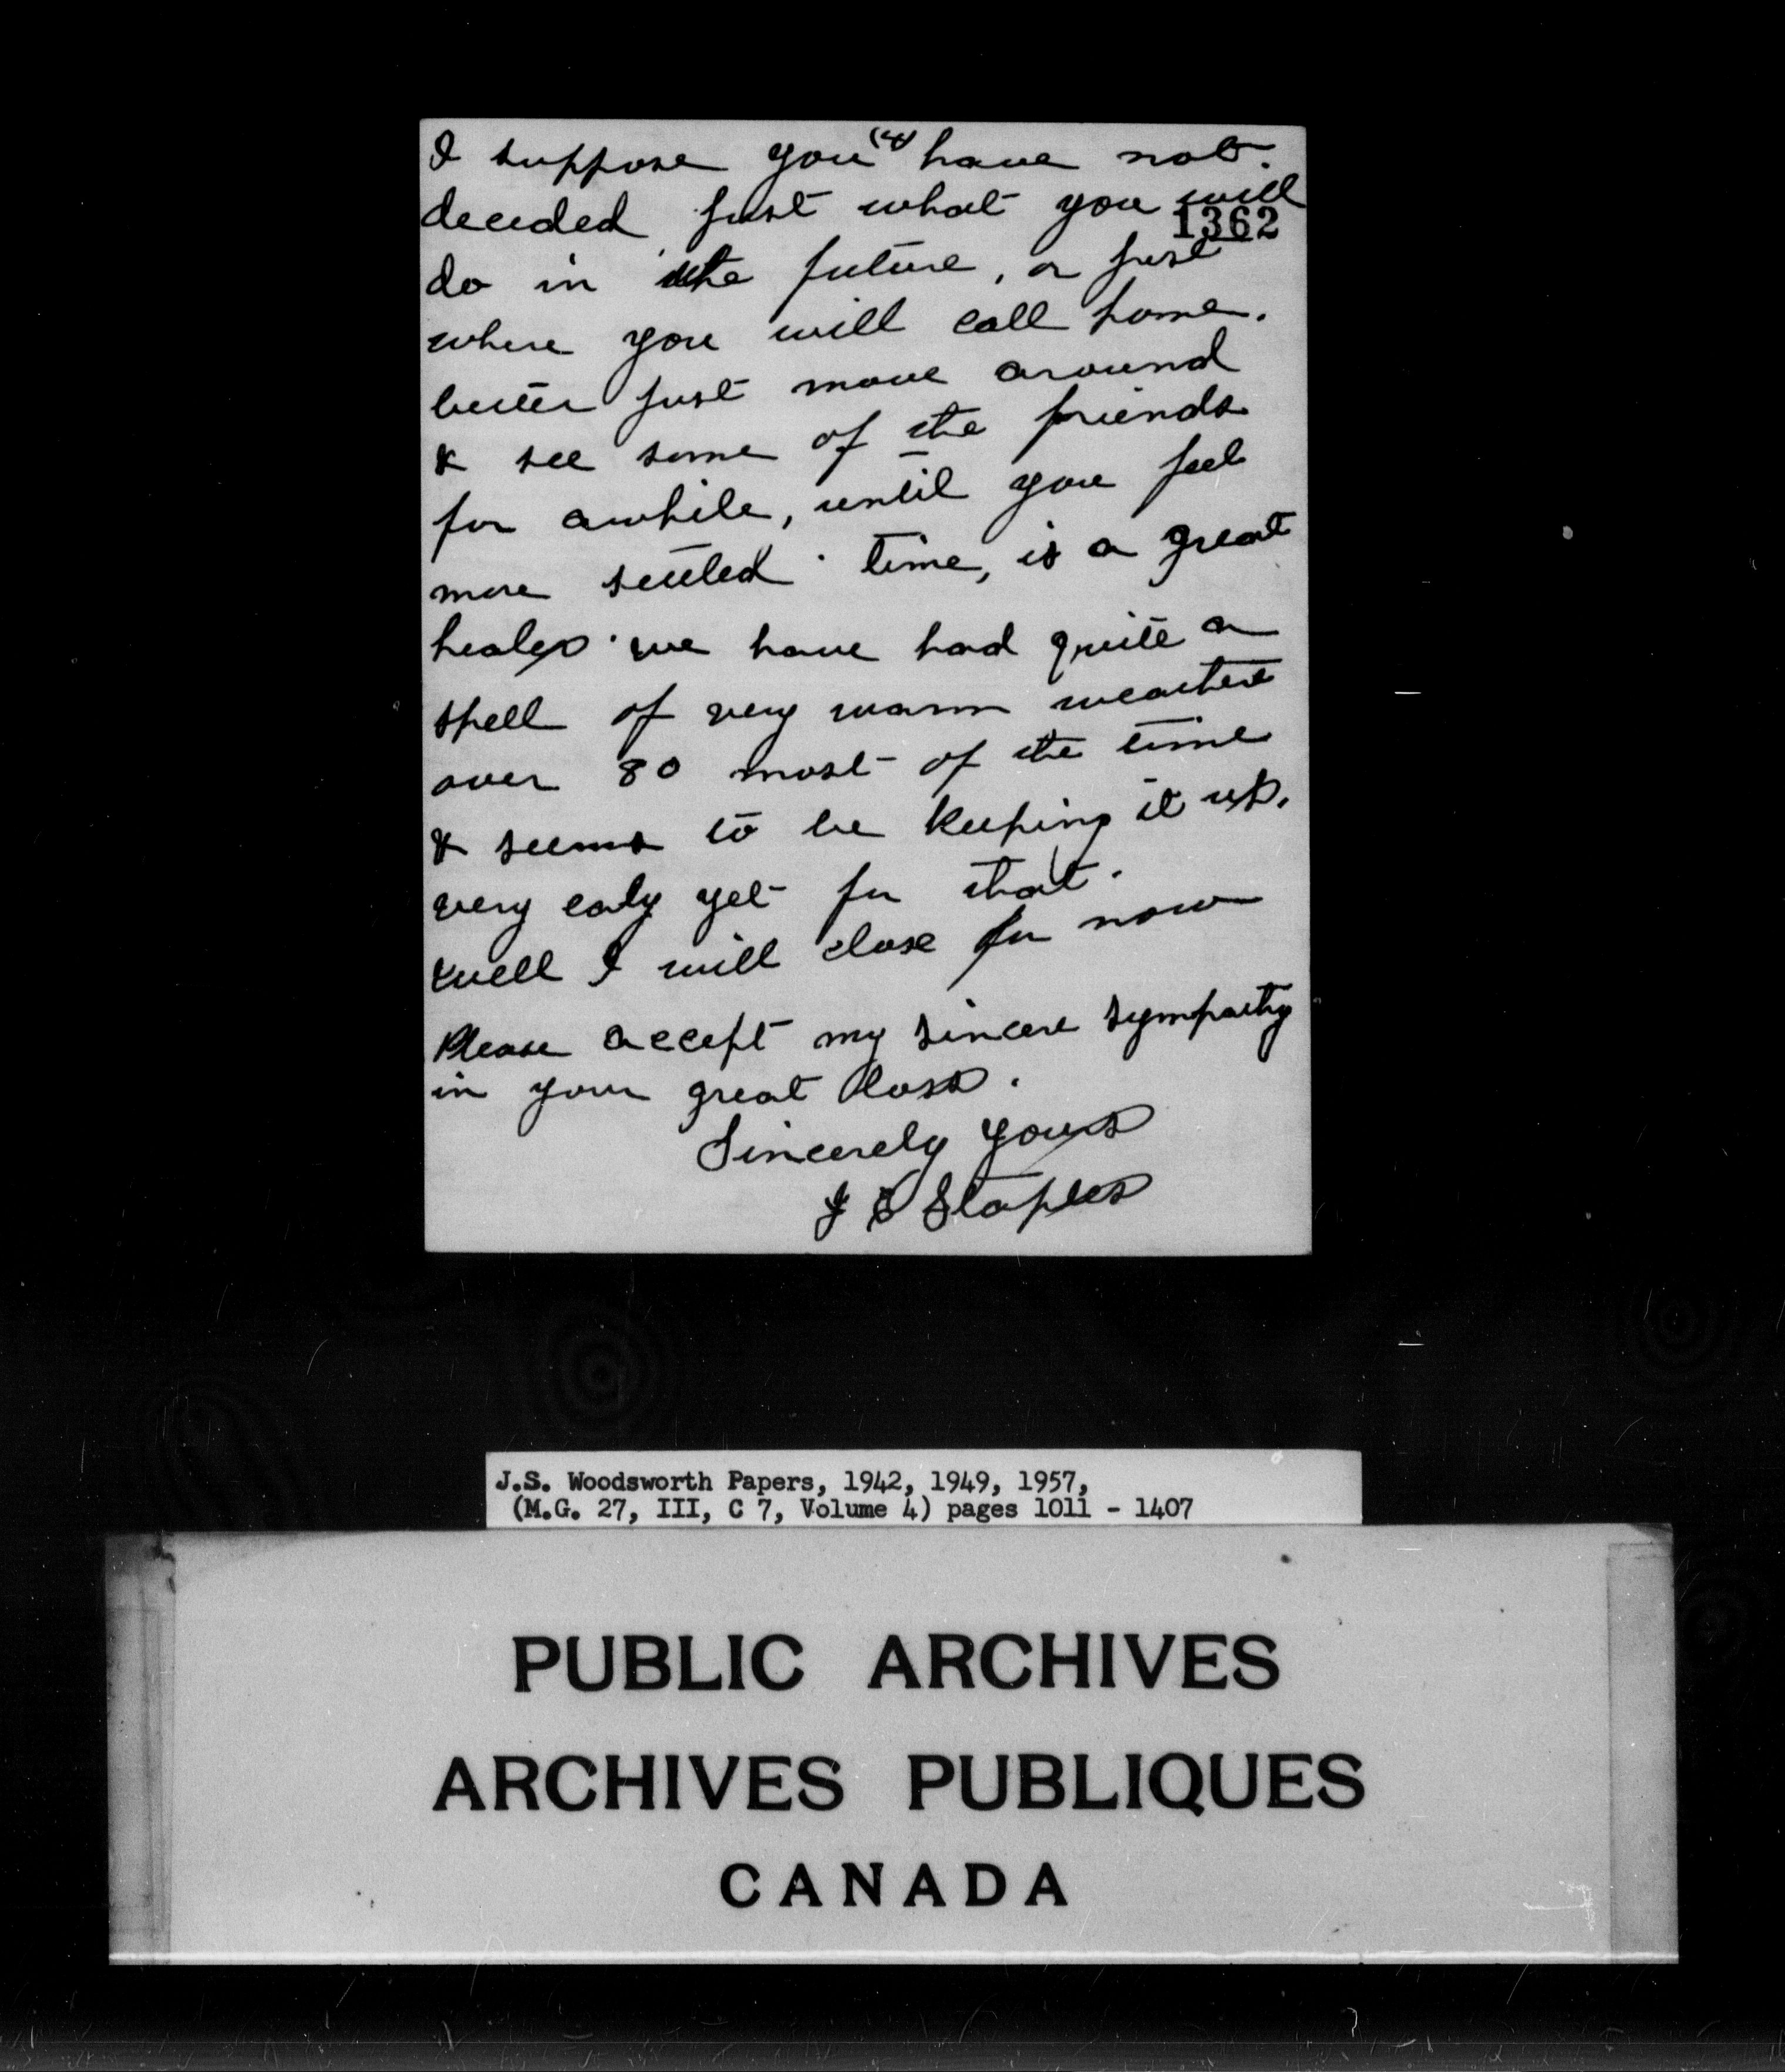 (4)
I suppose you have not.
decided just what you will
1362
do in the future, or just
where you will call home.
better just move around
& see some of the friends
for awhile, until you feel
more settled. time, is a great
healer. we have had quite a
spell of very warm weather
over 80 most of the time
& seems to be keeping it up.
very ealy yet for that.
well I will close for now
Please accept my sincere sympathy
in your great loss.
Sincerely yours
J E Staples
J.S. Woodsworth Papers, 1942, 1949, 1957,
(M.G. 27, III, C 7, Volume 4) pages 1011 - 1407
PUBLIC ARCHIVES
ARCHIVES PUBLIQUES
CANADA